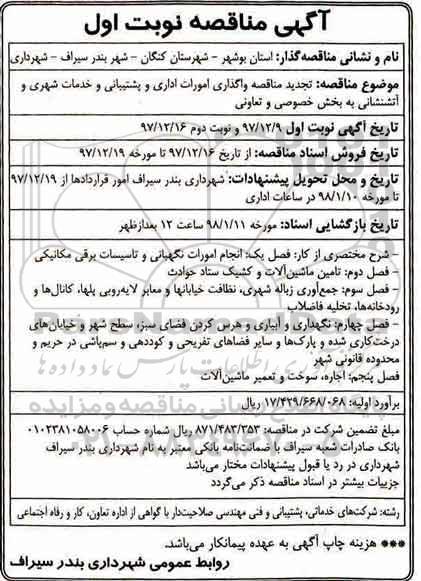 آگهی مناقصه نوبت اول
نام و نشانی مناقصه‌گذار: استان بوشهر - شهرستان کنگان - شهر بندر سیراف - شهرداری
موضوع مناقصه: تجدید مناقصه واگذاری امورات اداری و پشتیبانی و خدمات شهری و
آتشنشانی به بخش خصوصی و تعاونی
تاریخ آگهی نوبت اول ۹۷/۱۲/۹ و نوبت دوم ۹۷/۱۲/۱۶
تاریخ فروش اسناد مناقصه: از تاریخ ۹۷/۱۲/۱۶ تا مورخه ۹۷/۱۲/۱۹
تاریخ و محل تحویل پیشنهادات: شهرداری بندر سیراف امور قراردادها از ۹۷/۱۲/۱۹
تا مورخه ۹۸/۱/۱۰ در ساعات اداری
تاریخ بازگشایی اسناد: مورخه ۹۸/۱/۱۱ ساعت ۱۲ بعدازظهر
- شرح مختصری از کار: فصل یک: انجام امورات نگهبانی و تاسیسات برقی مکانیکی
- فصل دوم: تامین ماشین‌آلات و کشیک ستاد حوادث
- فصل سوم: جمع‌آوری زباله شهری، نظافت خیابانها و معابر لایه‌روبی پلها، کانال‌ها و
رودخانه‌ها، تخلیه فاضلاب
- فصل چهارم: نگهداری و آبیاری و هرس کردن فضای سبز، سطح شهر و خیابان‌های
درخت‌کاری شده و پارک‌ها و سایر فضاهای تفریحی و کوددهی و سم‌پاشی در حریم و
محدوده قانونی شهر
فصل پنجم: اجاره، سوخت و تعمیر ماشین‌آلات
برآورد اولیه: ۱۷/۴۲۹/۶۶۸/۰۶۸ریال
مبلغ تضمین شرکت در مناقصه: ۸۷۱/۴۸۳/۳۵۳ ریال شماره حساب ۰۱۰۲۳۸۱۰۵۸۰۰۶
بانک صادرات شعبه سیراف با ضمانت‌نامه بانکی معتبر به نام شهرداری بندر سیراف
شهرداری در رد یا قبول پیشنهادات مختار می‌باشد
جزییات بیشتر در اسناد مناقصه ذکر می‌گردد
رشته: شرکت‌های خدماتی، پشتیبانی و فنی مهندسی صلاحیت‌دار با گواهی از اداره تعاون، کار و رفاه اجتماعی
*** هزینه چاپ آگهی به عهده پیمانکار می‌باشد.
روابط عمومی شهرداری بندر سیراف